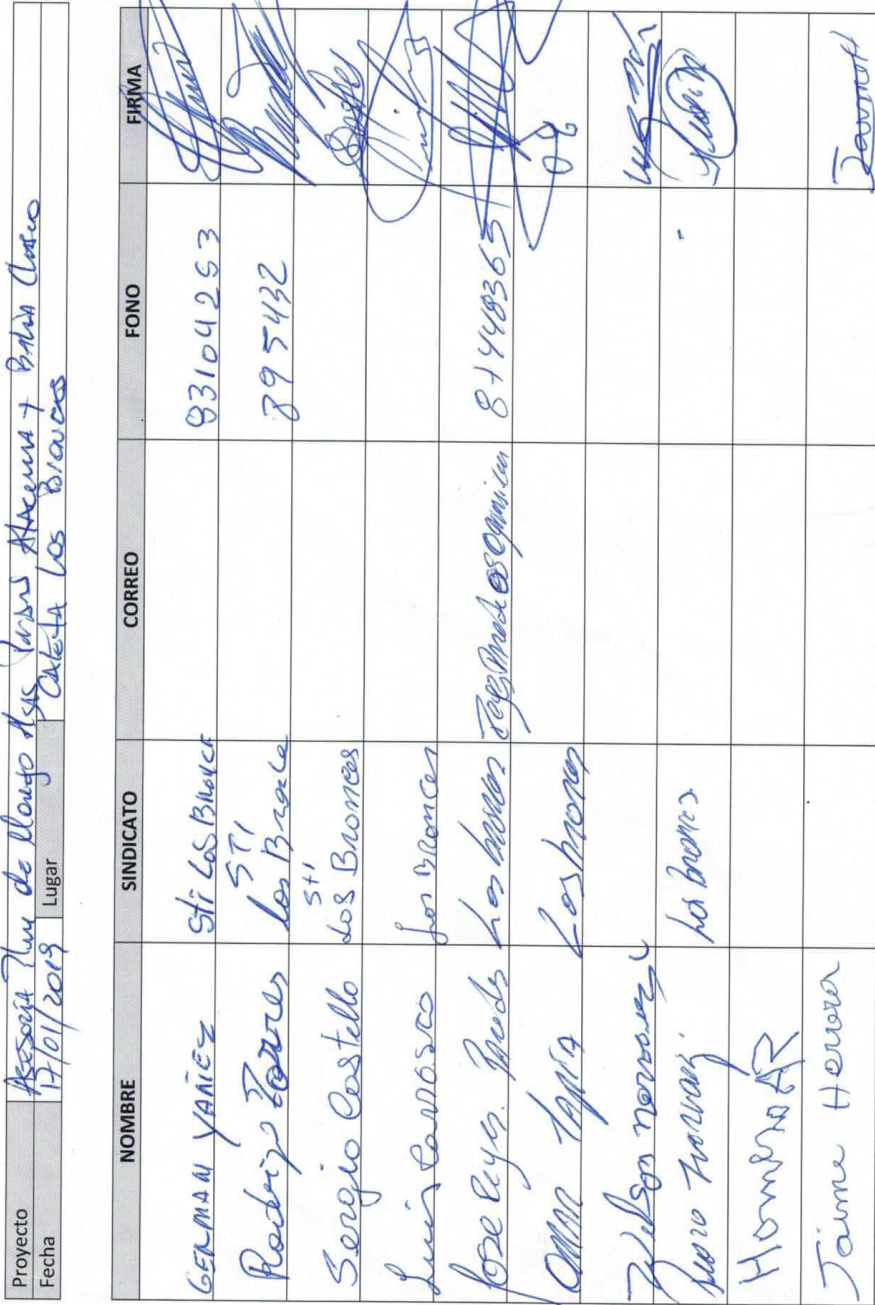 Proyecto Asesoría Plan de Manejo Algas Pardas Atacama y Bahía Chasco
Fecha 17/01/2019 Lugar Caleta Los Bronces
NOMBRE SINDICATO CORREO FONO FIRMA
GERMAN YAÑEZ Sti Los Bronce 93104253
Rodrigo Torres STI Los Bronce 395432
Sergio Castello sti Los Bronces
Luis Carrasco Los Bronces
Jose Reyes. Los bronces
Omar Tapia Los bronces
Wilson
Los bronces
Jaime Herrera